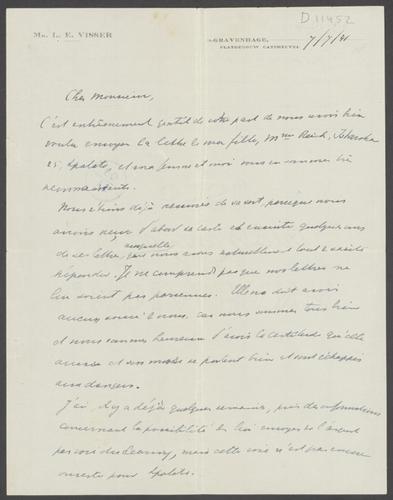 D 11452
Mr. L. E. VISSER
's-GRAVENHAGE,
7/7/41
Cher Monsieur,
C'est extrêmement gentil de votre part de nous avoir bien
voulu envoyer la lettre de ma fille, Mme Reich,
25, Spalato, et ma femme et moi vous en sommes très
reconnaissants.
Nous étions déjà rassurés de sa sort, parceque nous
avions reçu d'abord sa carte et ensuite quelques unes
de ses lettres, auxquelles nous avons naturellement tout de suite
répondu. Je ne comprend pas que nos lettres ne
lui soient pas parvenues. Elle ne doit avoir
aucun souci de nous, car nous sommes tous bien
et nous sommes heureux d'avoir la certitude qu'elle
aussi et son mari se portent bien et sont échappés
aux dangers.
J'ai, il y a déjà quelques semaines, pris des informations
concernant la possibilité de lui envoyer de l'argent
par voie du clearing, mais cette voie n'est pas encore
ouverte pour Spalato.